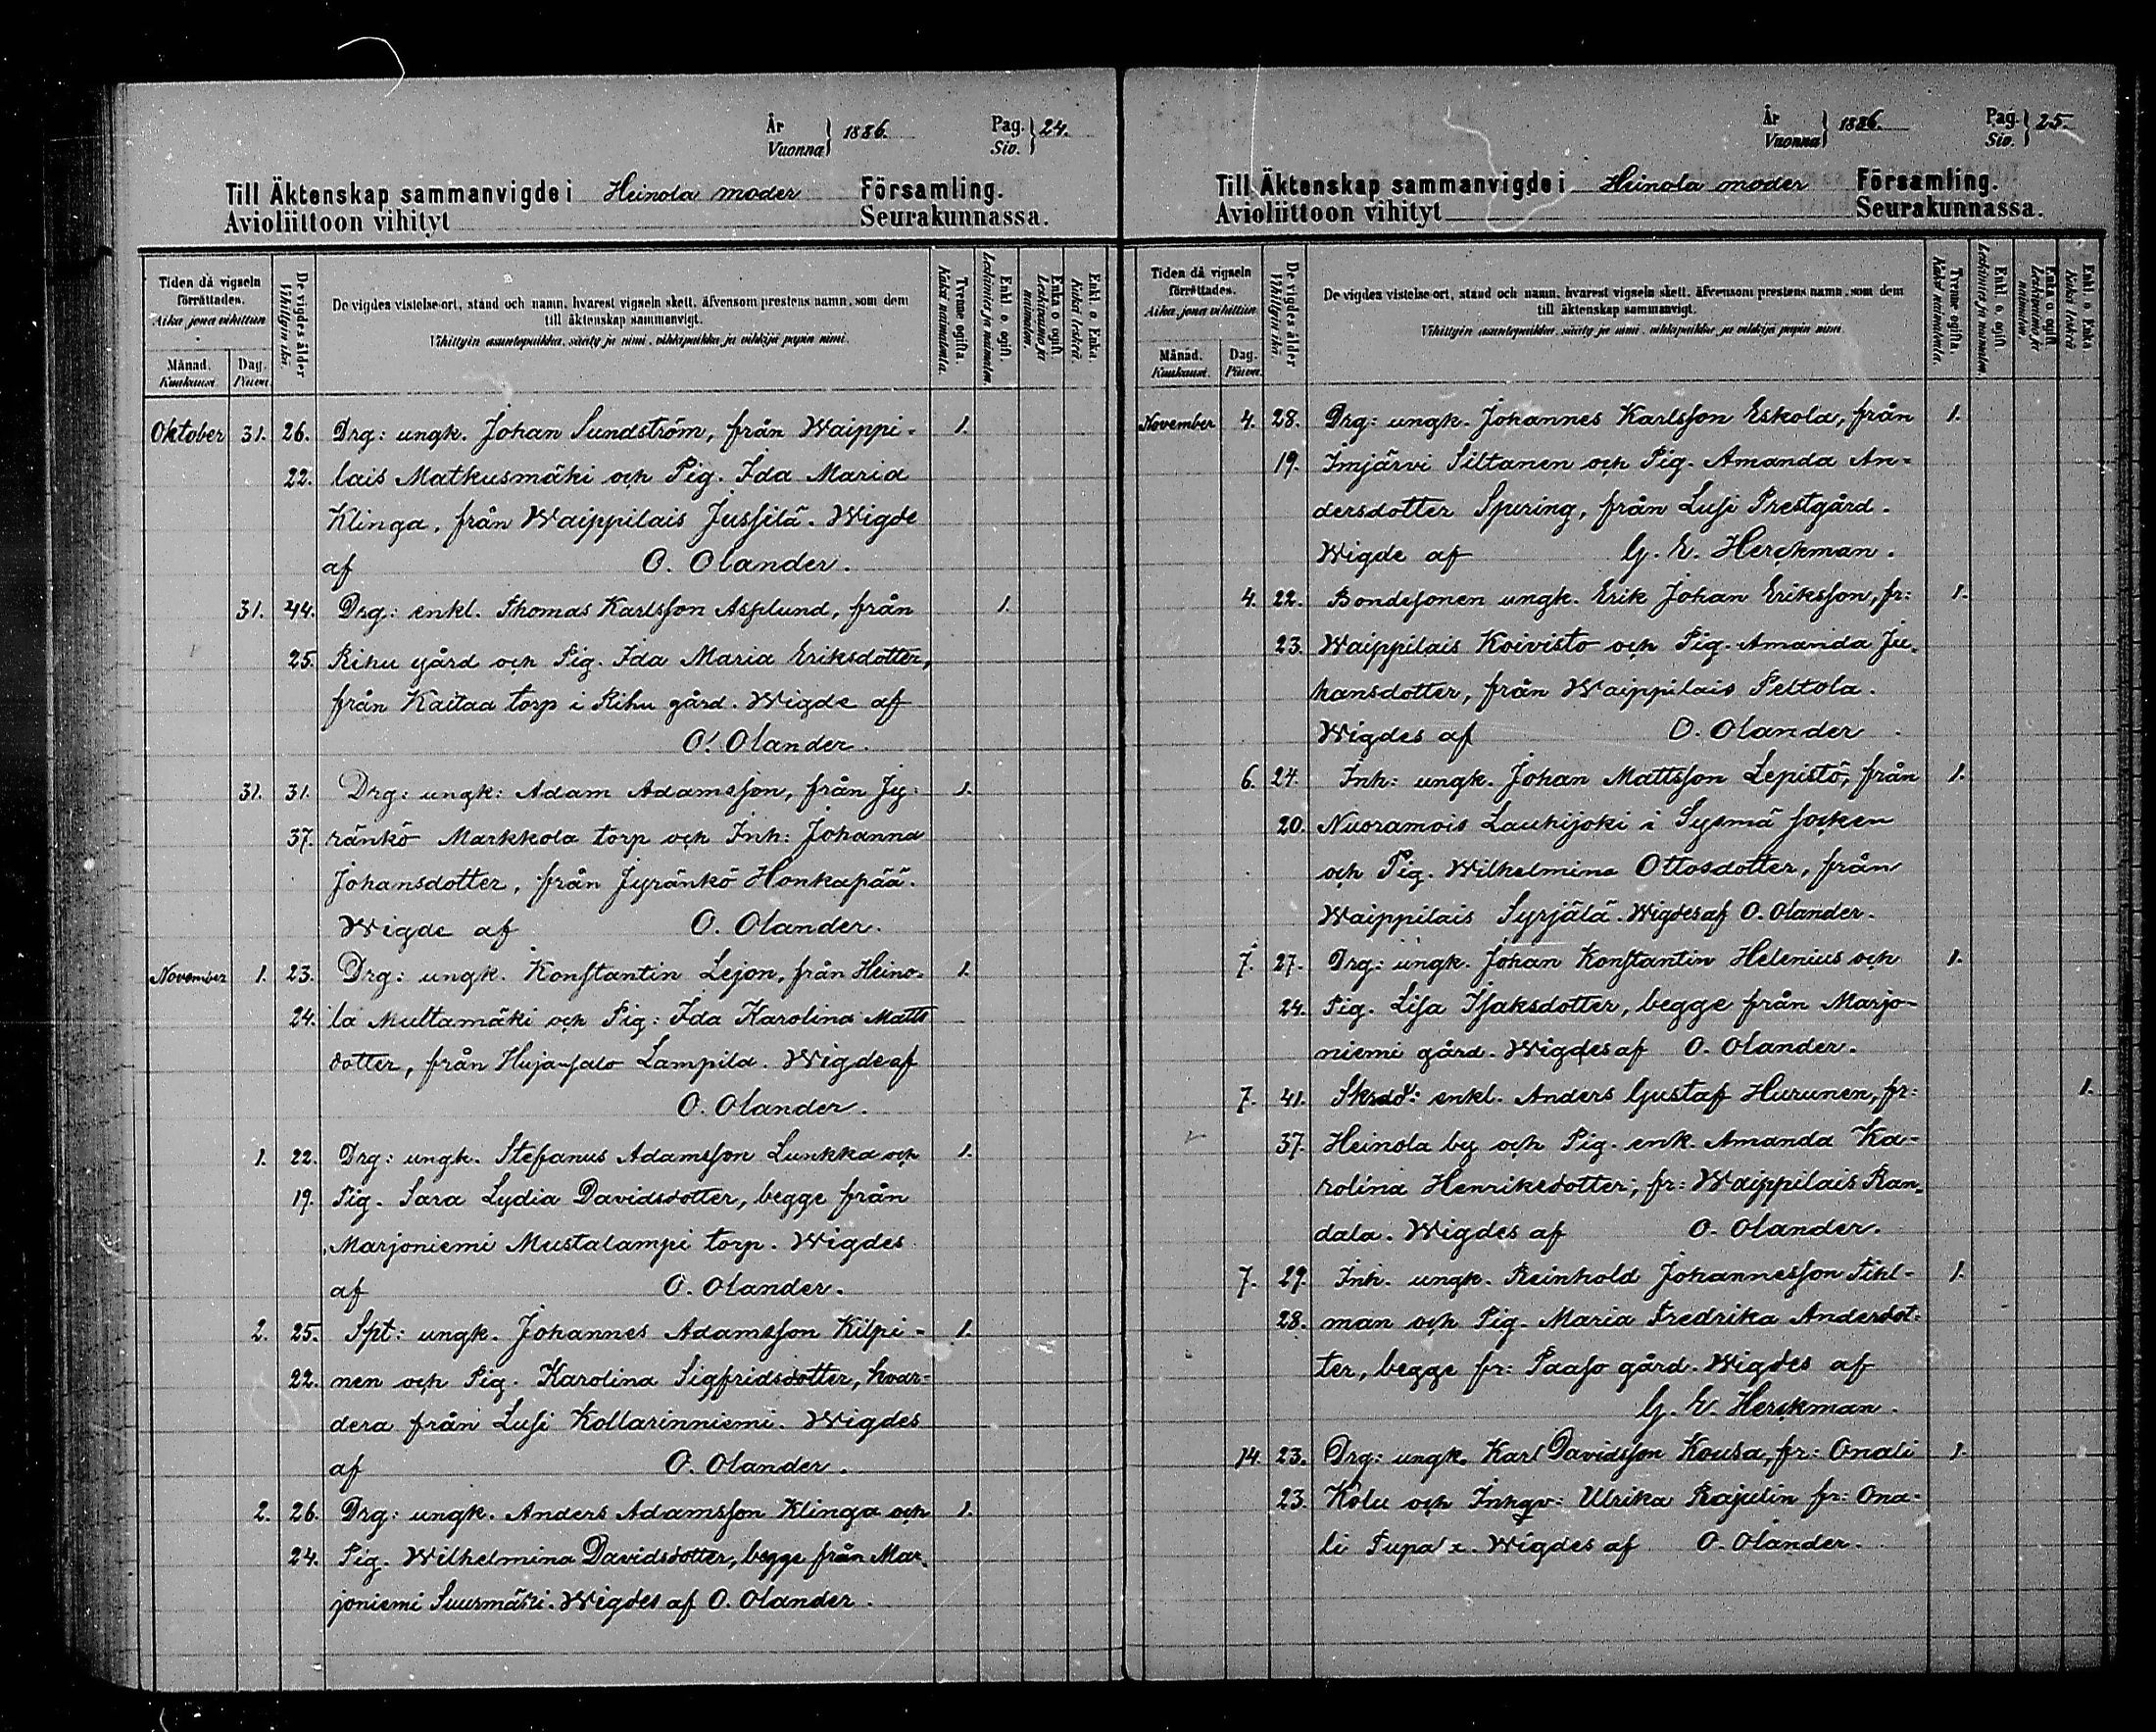 År
Vuonna
1886.
Pag.
Siv.
24.
Till Äktenskap sammanvigde i Heinola moder Församling.
Avioliittoon vihityt Seurakunnassa.
Tiden då vigseln
förrättades.
Aika, jona vihittiin
Månad.
Kuukausi.
Dag.
Päivä.
De vigdes ålder
Vihittyin ikä
De vigdes vistelse-ort, stånd och namn, hvarest vigseln skett, äfvensom prestens namn, som dem
till äktenskap sammanvigt.
Vihittyin asuntopaikka, sääty ja nimi, vihkipaikka ja vihkijä papin nimi.
Tvenne ogifta.
Kaksi naimatonta.
Enkl. o. ogift.
Leskimies ja naimaton.
Enka o. ogift
Leskivaimo ja
naimaton.
Enkl. o. Enka.
Kaksi leskeä.
Oktober 31. 26. Drg: ungk. Johan Sundström, från Waippi- 1.
22. lais Matkusmäki och Pig. Ida Maria
Klinga, från Waippilais Jussilä. Wigde
af O. Olander.
31. 44. Drg: enkl. Thomas Karlsson Asplund, från 1.
25. Rihu gård och Pig. Ida Maria Eriksdotter,
från Kaitaa torp i Rihu gård. Wigde af
O. Olander.
31. 31. Drg: ungk: Adam Adamsson, från Jy- 1.
37. ränkö Markkola torp och Inh: Johanna
Johansdotter, från Jyränkö Honkapää.
Wigde af O. Olander.
November 1. 23. Drg: ungk. Konstantin Lejon, från Heino- 1.
24. la Multamäki och Pig: Ida Karolina Matts
dotter, från Hujansalo Lampila. Wigde af
O. Olander.
1. 22. Drg: ungk. Stefanus Adamsson Lunkka och 1.
19. Pig. Sara Lydia Davidsdotter, begge från
Marjoniemi Mustalampi torp. Wigdes
af O. Olander.
2. 25. Spt: ungk. Johannes Adamsson Kilpi- 1.
22. nen och Pig. Karolina Sigfridsdotter, hvar-
dera från Lusi Kollarinniemi. Wigdes
af O. Olander.
2. 26. Drg: ungk. Anders Adamsson Klinga och 1.
24. Pig. Wilhelmina Davidsdotter, begge från Mar-
joniemi Suurmäki. Wigdes af O. Olander.
År
Vuonna
1886.
Pag.
Siv.
25.
Till Äktenskap sammanvigde i Heinola moder Församling.
Avioliittoon vihityt Seurakunnassa.
Tiden då vigseln
förrättades.
Aika, jona vihittiin
Månad.
Kuukausi.
Dag.
Päivä.
De vigdes ålder
Vihittyin ikä
De vigdes vistelse-ort, stånd och namn, hvarest vigseln skett, äfvensom prestens namn, som dem
till äktenskap sammanvigt.
Vihittyin asuntopaikka, sääty ja nimi, vihkipaikka ja vihkijä papin nimi.
Tvenne ogifta.
Kaksi naimatonta.
Enkl. o. ogift.
Leskimies ja naimaton.
Enka o. ogift
Leskivaimo ja
naimaton.
Enkl. o. Enka.
Kaksi leskeä
November 4. 28. Drg: ungk. Johannes Karlsson Eskola, från 1.
19. Imjärvi Siltanen och Pig. Amanda An-
dersdotter Spuring, från Lusi Prestgård.
Wigde af G. E. Herckman.
4. 22. Bondesonen ungk. Erik Johan Eriksson, fr: 1.
23. Waippilais Koivisto och Pig. Amanda Ju-
hansdotter, från Waippilais Peltola.
Wigdes af O. Olander
6. 24. Inh: ungk. Johan Mattsson Lepistö, från 1.
20. Nuoramois Lauhijoki i Sysmä socken
och Pig. Wilhelmina Ottosdotter, från
Waippilais Syrjälä. Wigdes af O. Olander.
7. 27. Drg: ungk. Johan Konstantin Helenius och 1.
24. Pig. Lisa Isaksdotter, begge från Marjo-
niemi gård. Wigdes af O. Olander.
7. 41. Skrdd: enkl. Anders Gustaf Hurunen, fr: 1.
37. Heinola by och Pig. enk. Amanda Ka-
rolina Henriksdotter, fr: Waippilais Ran-
dala. Wigdes af O. Olander.
7. 29. Inh. ungk. Reinhold Johannesson Pihl- 1.
28. man och Pig. Maria Fredrika Andersdot-
ter, begge fr: Paaso gård. Wigdes af
G. E. Herckman.
14. 23. Drg: ungk. Karl Davidsson Kousa, fr: Onali 1.
23. Kolu och Inhgv: Ulrika Rajulin fr: Ona-
li Wigdes af O. Olander.